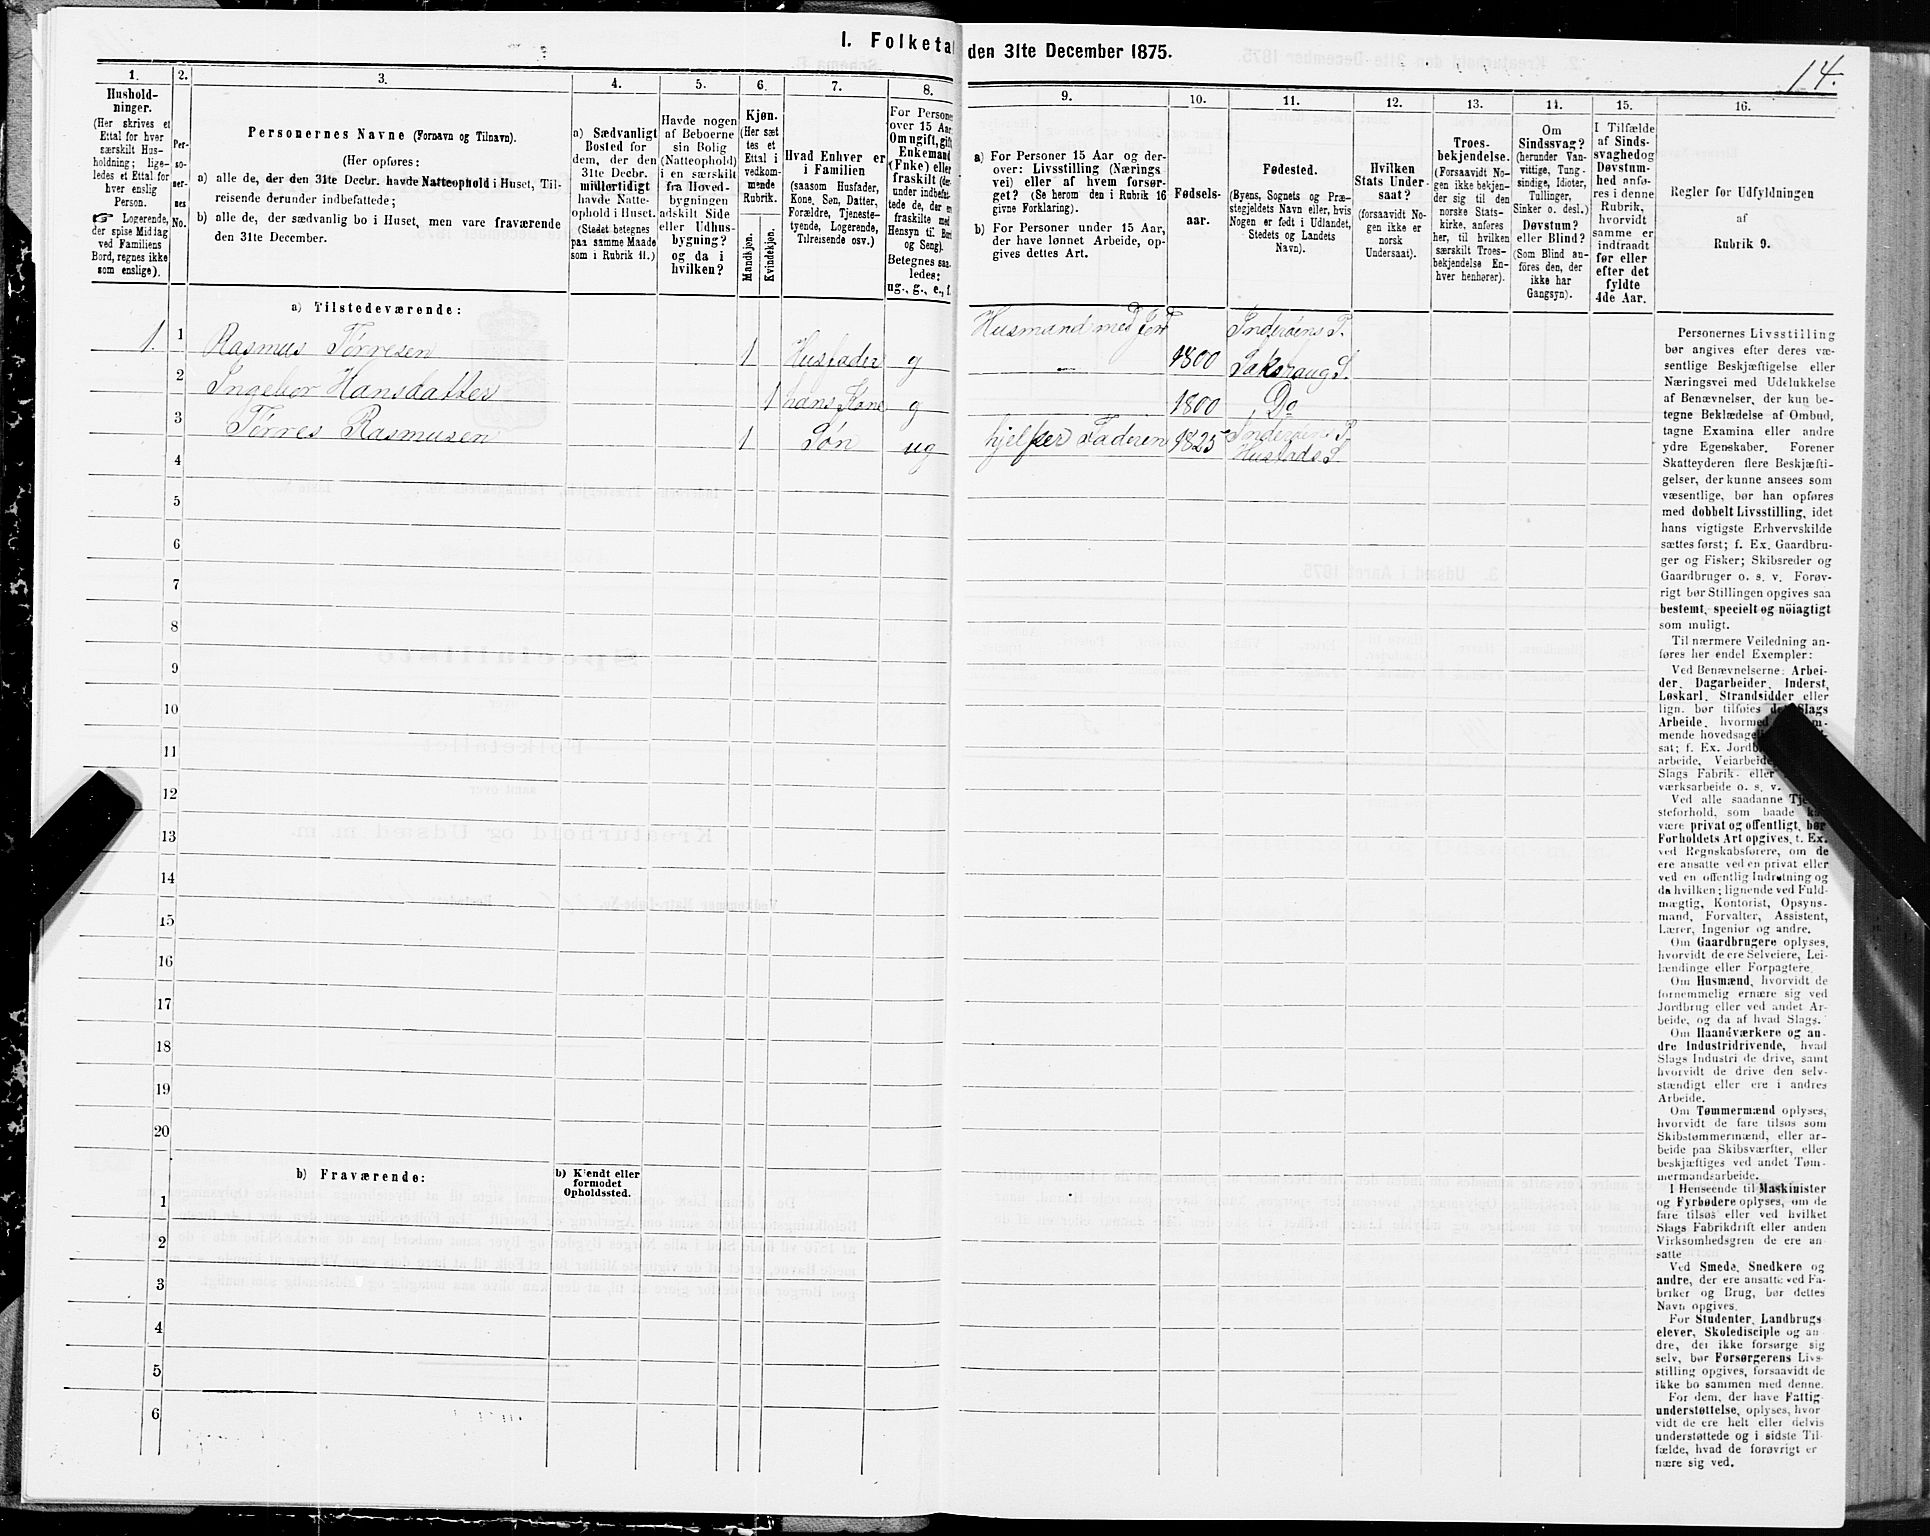 I. Folketal den 31te December 1875.
14.
1.
Hushold-
ninger.
(Her skrives et
Ettal for hver
særskilt Hus-
holdning; lige-
ledes et Ettal for
hver enslig
Person.
☞ Logerende,
der spise Middag
ved Familiens
Bord, regnes ikke
som enslige).
2.
Per-
so-
ner-
nes
No.
3.
Personernes Navne (Fornavn og Tilnavn).
(Her opføres:
a) alle de, der den 31te Decbr. havde Natteophold i Huset, Til-
reisende derunder indbefattede;
b) alle de, der sædvanlig bo i Huset, men vare fraværende
den 31te December.
4.
a) Sædvanligt
Bosted for
dem, der den
31te Decbr.
midlertidigt
havde Natte-
ophold i Huset.
(Stedet betegnes
paa samme Maade
som i Rubrik 11.)
5.
Havde nogen
af Beboerne
sin Bolig
(Natteophold)
i en særskilt
fra Hoved-
bygningen
adskilt Side
eller Udhus-
bygning?
og da i
hvilken?
6.
Kjøn.
(Her sæt
tes et
Ettal i
vedkom-
mende
Rubrik.
Mandkjøn.
Kvindekjøn.
7.
Hvad Enhver er
i Familien
(saasom Husfader,
Kone, Søn, Datter,
Forældre, Tjeneste-
tyende, Logerende,
Tilreisende osv.)
8.
For Personer
over 15 Aar:
Om ugift, gift,
Enkemand
(Enke) eller
fraskilt (der-
under indbefat-
tede de, der er
fraskilte med
Hensyn til Bord
og Seng).
Betegnes saa-
ledes:
ug., g., e., f.
9.
a) For Personer 15 Aar og der-
over: Livsstilling (Nærings
vei) eller af hvem forsør-
get? (Se herom den i Rubrik 16
givne Forklaring).
b) For Personer under 15 Aar,
der have lønnet Arbeide, op-
gives dettes Art.
10.
Fødsels-
aar.
11.
Fødested.
(Byens, Sognets og Præ-
stegjeldets Navn eller, hvis
Nogen er født i Udlandet,
Stedets og Landets
Navn).
12.
Hvilken
Stats Under-
saat?
(forsaavidt No-
gen ikke er
norsk
Undersaat).
13.
Troes-
bekjendelse.
(Forsaavidt No-
gen ikke bekjen-
der sig til den
norske Stats-
kirke, anføres
her, til hvilken
særskilt Troes-
bekjendelse En-
hver henhører).
14.
Om
Sindssvag?
(herunder Van-
vittige, Tung-
sindige, Idioter,
Tullinger,
Sinker o. desl.)
Døvstum?
eller Blind?
(Som Blind an-
føres den, der
ikke har
Gangsyn).
15.
I Tilfælde
af Sinds-
svaghed og
Døvstum-
hed anfø-
res i denne
Rubrik,
hvorvidt
samme er
indtraadt
før eller
efter det
fyldte
4de Aar.
16.
Regler for Udfyldningen
af
Rubrik 9.
a) Tilstedeværende:
1. 1 Rasmus Tørresen 1 Husfader g Husmand med Jord 1800 Inderøens P. Saksraug S.
2 Ingebor Hansdatter 1 hans Kone g — 1800 Do
3 Tørres Rasmusen 1 Søn ug hjelper Faderen 1825 Inderøens P. Hustads S.
4
5
6
7
8
9
10
11
12
13
14
15
16
17
18
19
20
b) Fraværende:
b) Kjendt eller
formodet
Opholdssted.
1
2
3
4
5
6
Personernes Livsstilling
bør angives efter deres væ-
sentlige Beskjæftigelse eller
Næringsvei med Udelukkelse
af Benævnelser, der kun be-
tegne Beklædelse af Ombud,
tagne Examina eller andre
ydre Egenskaber. Forener
Skatteyderen flere Beskjæfti-
gelser, der kunne ansees som
væsentlige, bør han opføres
med dobbelt Livsstilling, idet
hans vigtigste Erhvervskilde
sættes først; f. Ex. Gaardbru-
ger og Fisker; Skibsreder og
Gaardbruger o. s. v. Forøv-
rigt bør Stillingen opgives saa
bestemt, specielt og nöiagtigt
som muligt.
Til nærmere Veiledning an-
føres her endel Exempler:
Ved Benævnelserne: Arbei-
der, Dagarbeider, Inderst,
Løskarl, Strandsidder eller
lign. bør tilføies det Slags
Arbeide, hvormed
mende hovedsageli
sat; f. Ex. Jordb
arbeide, Veiarbeide
Slags Fabrik- eller
værksarbeide o. s. v.
Ved alle saadanne Tje
steforhold, som baade ka
være privat og offentligt, bør
Forholdets Art opgives, t. Ex.
ved Regnskabsførere, om de
ere ansatte ved en privat eller
ved en offentlig Indretning og
da hvilken; lignende ved Fuld-
mægtig, Kontorist, Opsyns-
mand, Forvalter, Assistent,
Lærer, Ingeniør og andre.
Om Gaardbrugere oplyses,
hvorvidt de ere Selveiere, Lei-
lændinge eller Forpagtere.
Om Husmænd, hvorvidt de
fornemmelig ernære sig ved
Jordbrug eller ved andet Ar-
beide, og da af hvad Slags.
Om Haandværkere og an-
dre Industridrivende, hvad
Slags Industri de drive, samt
hvorvidt de drive den selv-
stændigt eller ere i andres
Arbeide.
Om Tømmermænd oplyses,
hvorvidt de fare tilsøs som
Skibstømmermænd, eller ar-
beide paa Skibsværfter, eller
beskjæftiges ved andet Tøm-
mermandsarbeide.
I Henseende til Maskinister
og Fyrbødere oplyses, om de
fare tilsøs eller ved hvilket
Slags Fabrikdrift eller anden
Virksomhedsgren de ere an-
satte.
Ved Smede, Snedkere og
andre, der ere ansatte ved Fa-
briker og Brug, bør dettes
Navn opgives.
For Studenter, Landbrugs
elever, Skoledisciple og an
dre, der ikke forsørge sig
selv, bør Forsørgerens Livs-
stilling opgives, forsaavidt de
ikke bo sammen med denne.
For dem, der have Fattig
understøttelse, oplyses, hvor
vidt de ere helt eller delvis
understøttede og i sidste Til-
fælde, hvad de forøvrigt er
nære sig ved.